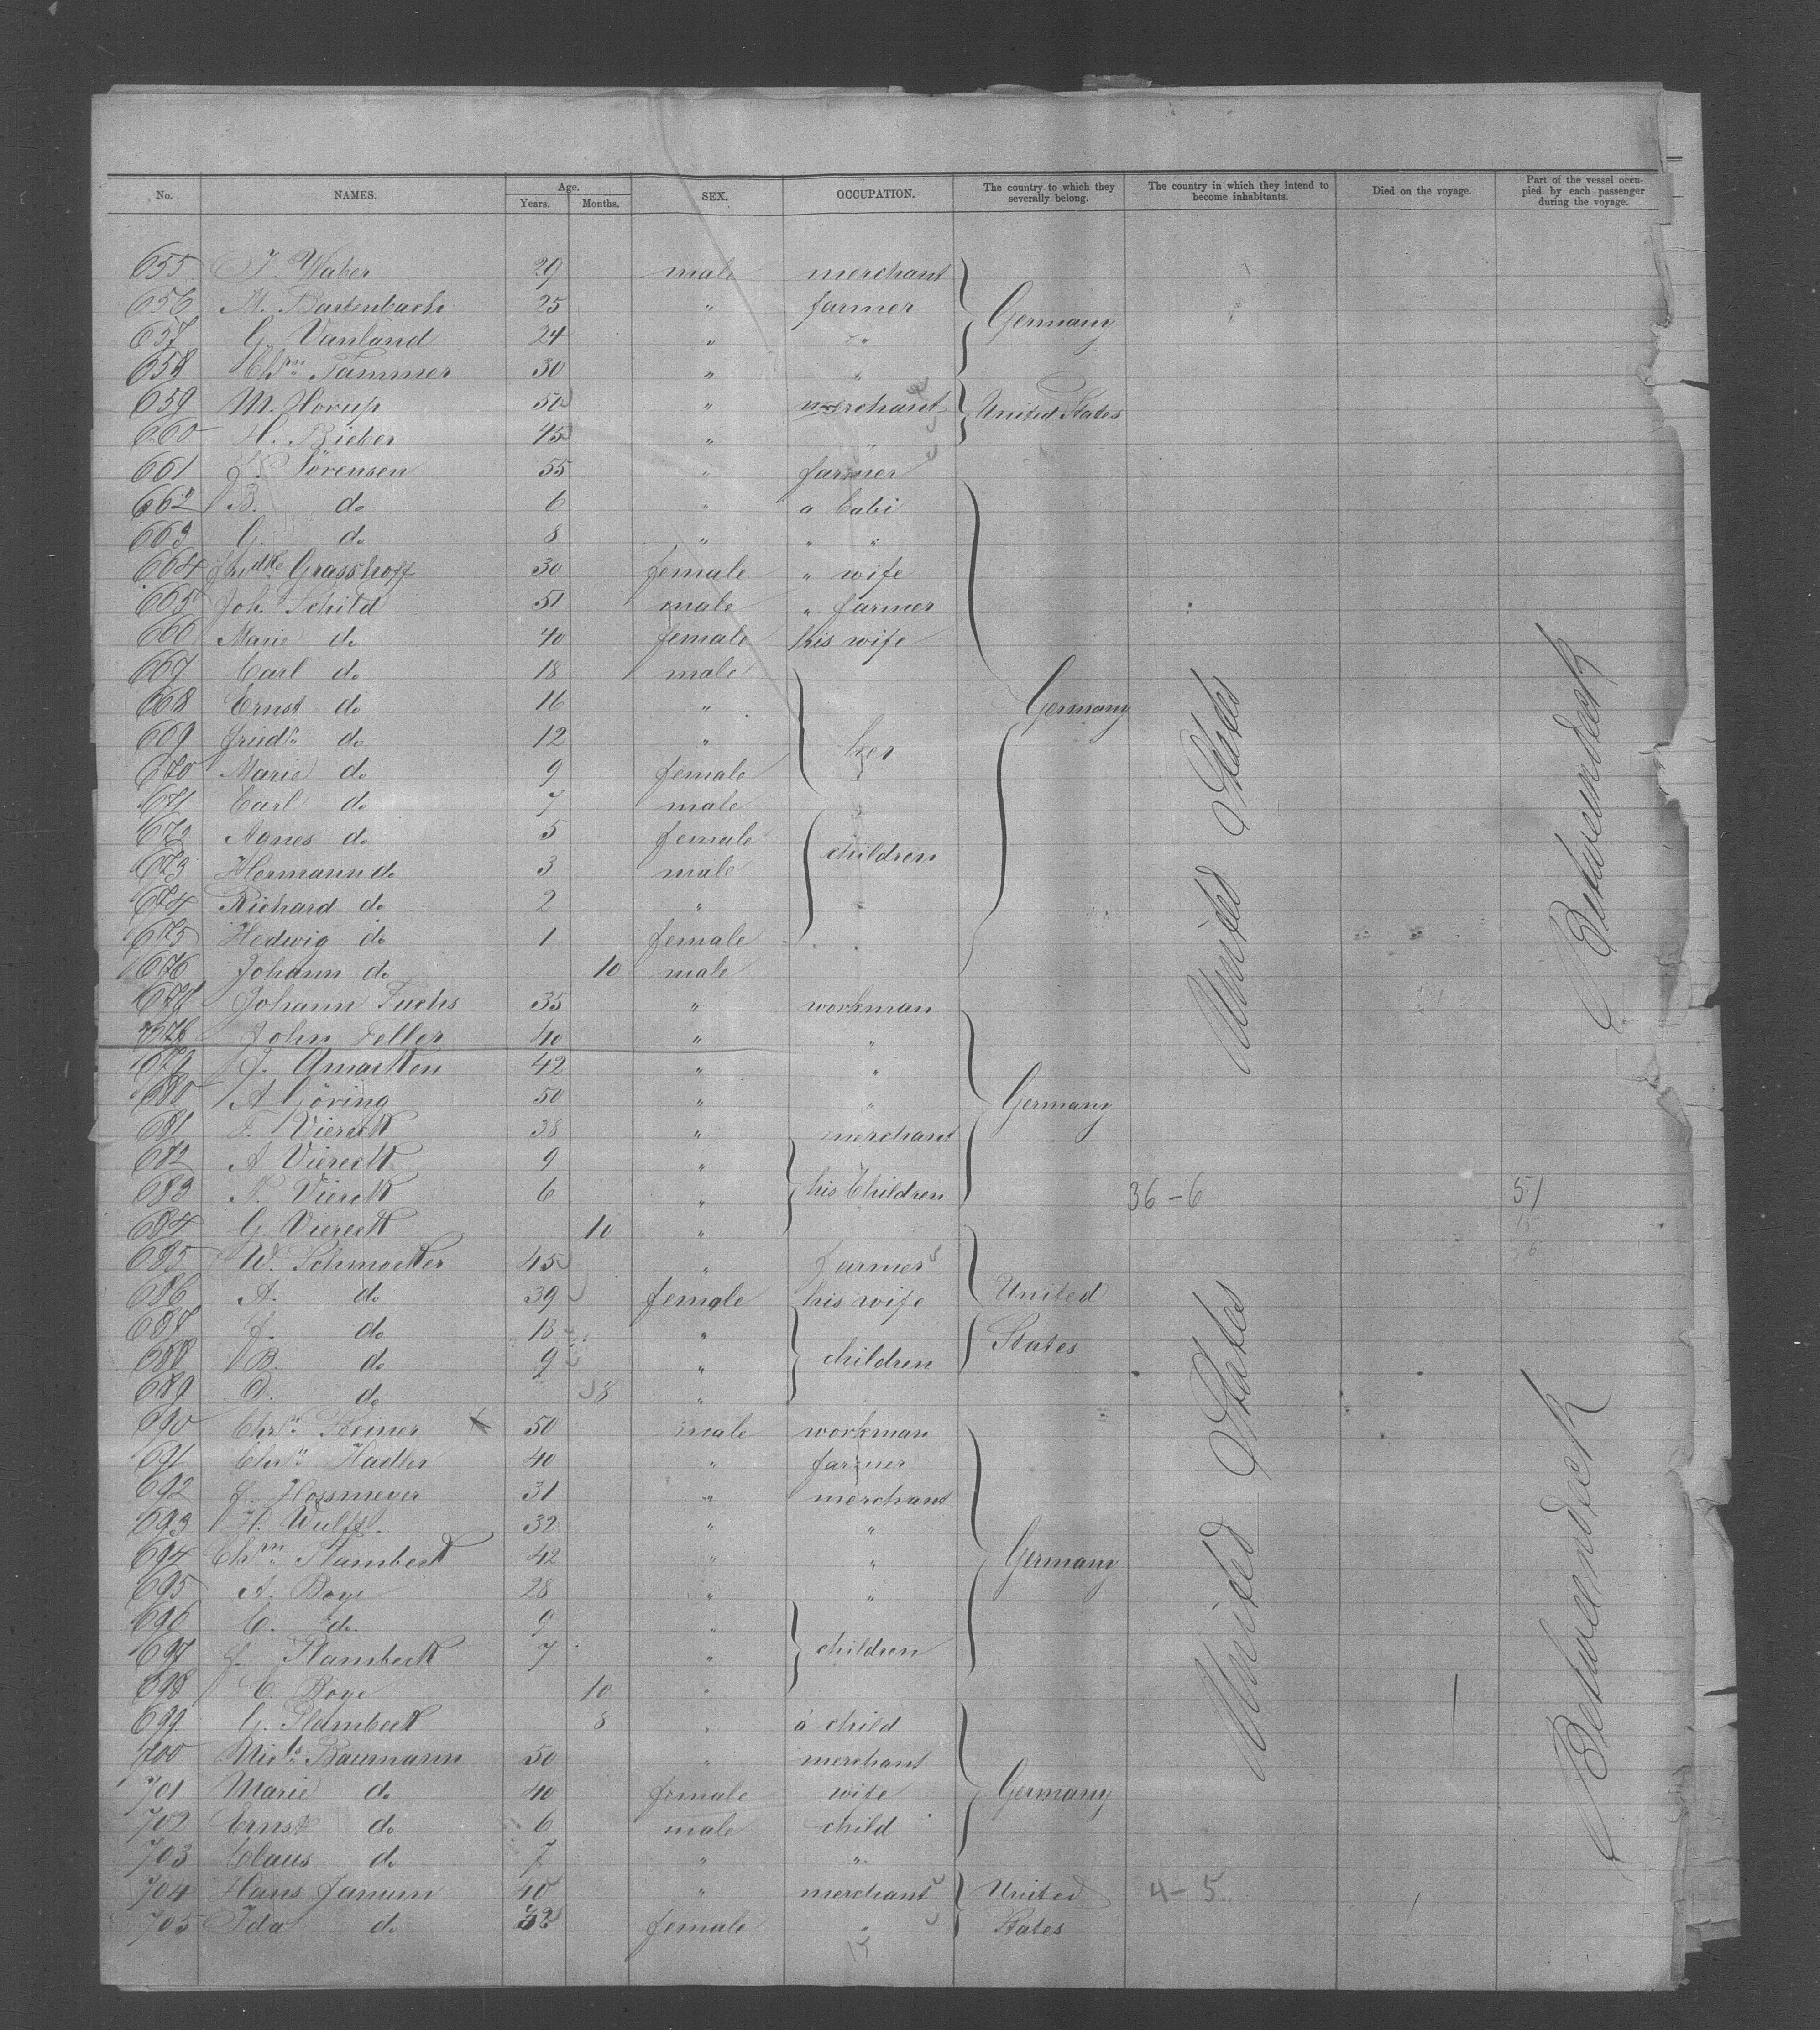 No. NAMES. Age. Years. Months. SEX. OCCUPATION. The country to which they severally belong. The country in which they intend to become inhabitants. Died on the voyage. Part of the vessel occupied by each passenger during the voyage.
655 J. Waber 29 male merchant
656 M. Bartenbach 25 " farmer Germany
657 G. Vanland 24 " "
658 Chrn Tammer 30 " "
659 M. Horup 52 " merchant United States
660 H. Bieber 45 " "
661 J. Sörensen 55 " farmer
662 B. do 6 " a babi
663 G. do 8 " " "
664 Grasshoff 30 female " wife
665 Joh. Schild 51 male " farmer
666 Marie do 40 female his wife
667 Carl do 18 male
668 Ernst do 16 " Germany
669 Friedr do 12 " her
670 Marie do 9 female
671 Carl do 7 male
672 Agnes do 5 female children
673 Hermann do 3 male
674 Richard do 2 "
675 Hedwig do 1 female
676 Johann do 10 male
677 Johann Fuchs 35 " workman
678 John Feller 40 " "
679 J. 42 " "
680 A Göring 50 " " Germany
681 F. Viereck 38 " merchant
682 A Viereck 9 "
683 N. Viereck 6 " his Children 36-6 51
684 G. Viereck 10 "
685 W. Schmocker 45 " farmer
686 A. do 39 female his wife United
687 J. do 13 " States
688 B. do 9 " children
689 D. do 8 "
690 Chrn Steiner 50 male workman
691 Chrn Hadler 40 " farmer
692 J. Hossmeyer 31 " merchant
693 H. Wulff. 32 " "
694 Chrn Plambeck 42 " " Germany
695 A. Boye 28 " "
696 C. do 9 "
697 J. Plambeck 7 " children
698 C. Boye 10 "
699 G. Plambeck 8 " a child
700 Baumann 50 " merchant
701 Marie do 40 female wife Germany
702 Ernst do 6 male child
703 Claus do 7 " "
704 Hans Janum 40 " merchant United 4-5
705 Ida do 32 female " States
United States
Betweendeck
United States
Betweendeck